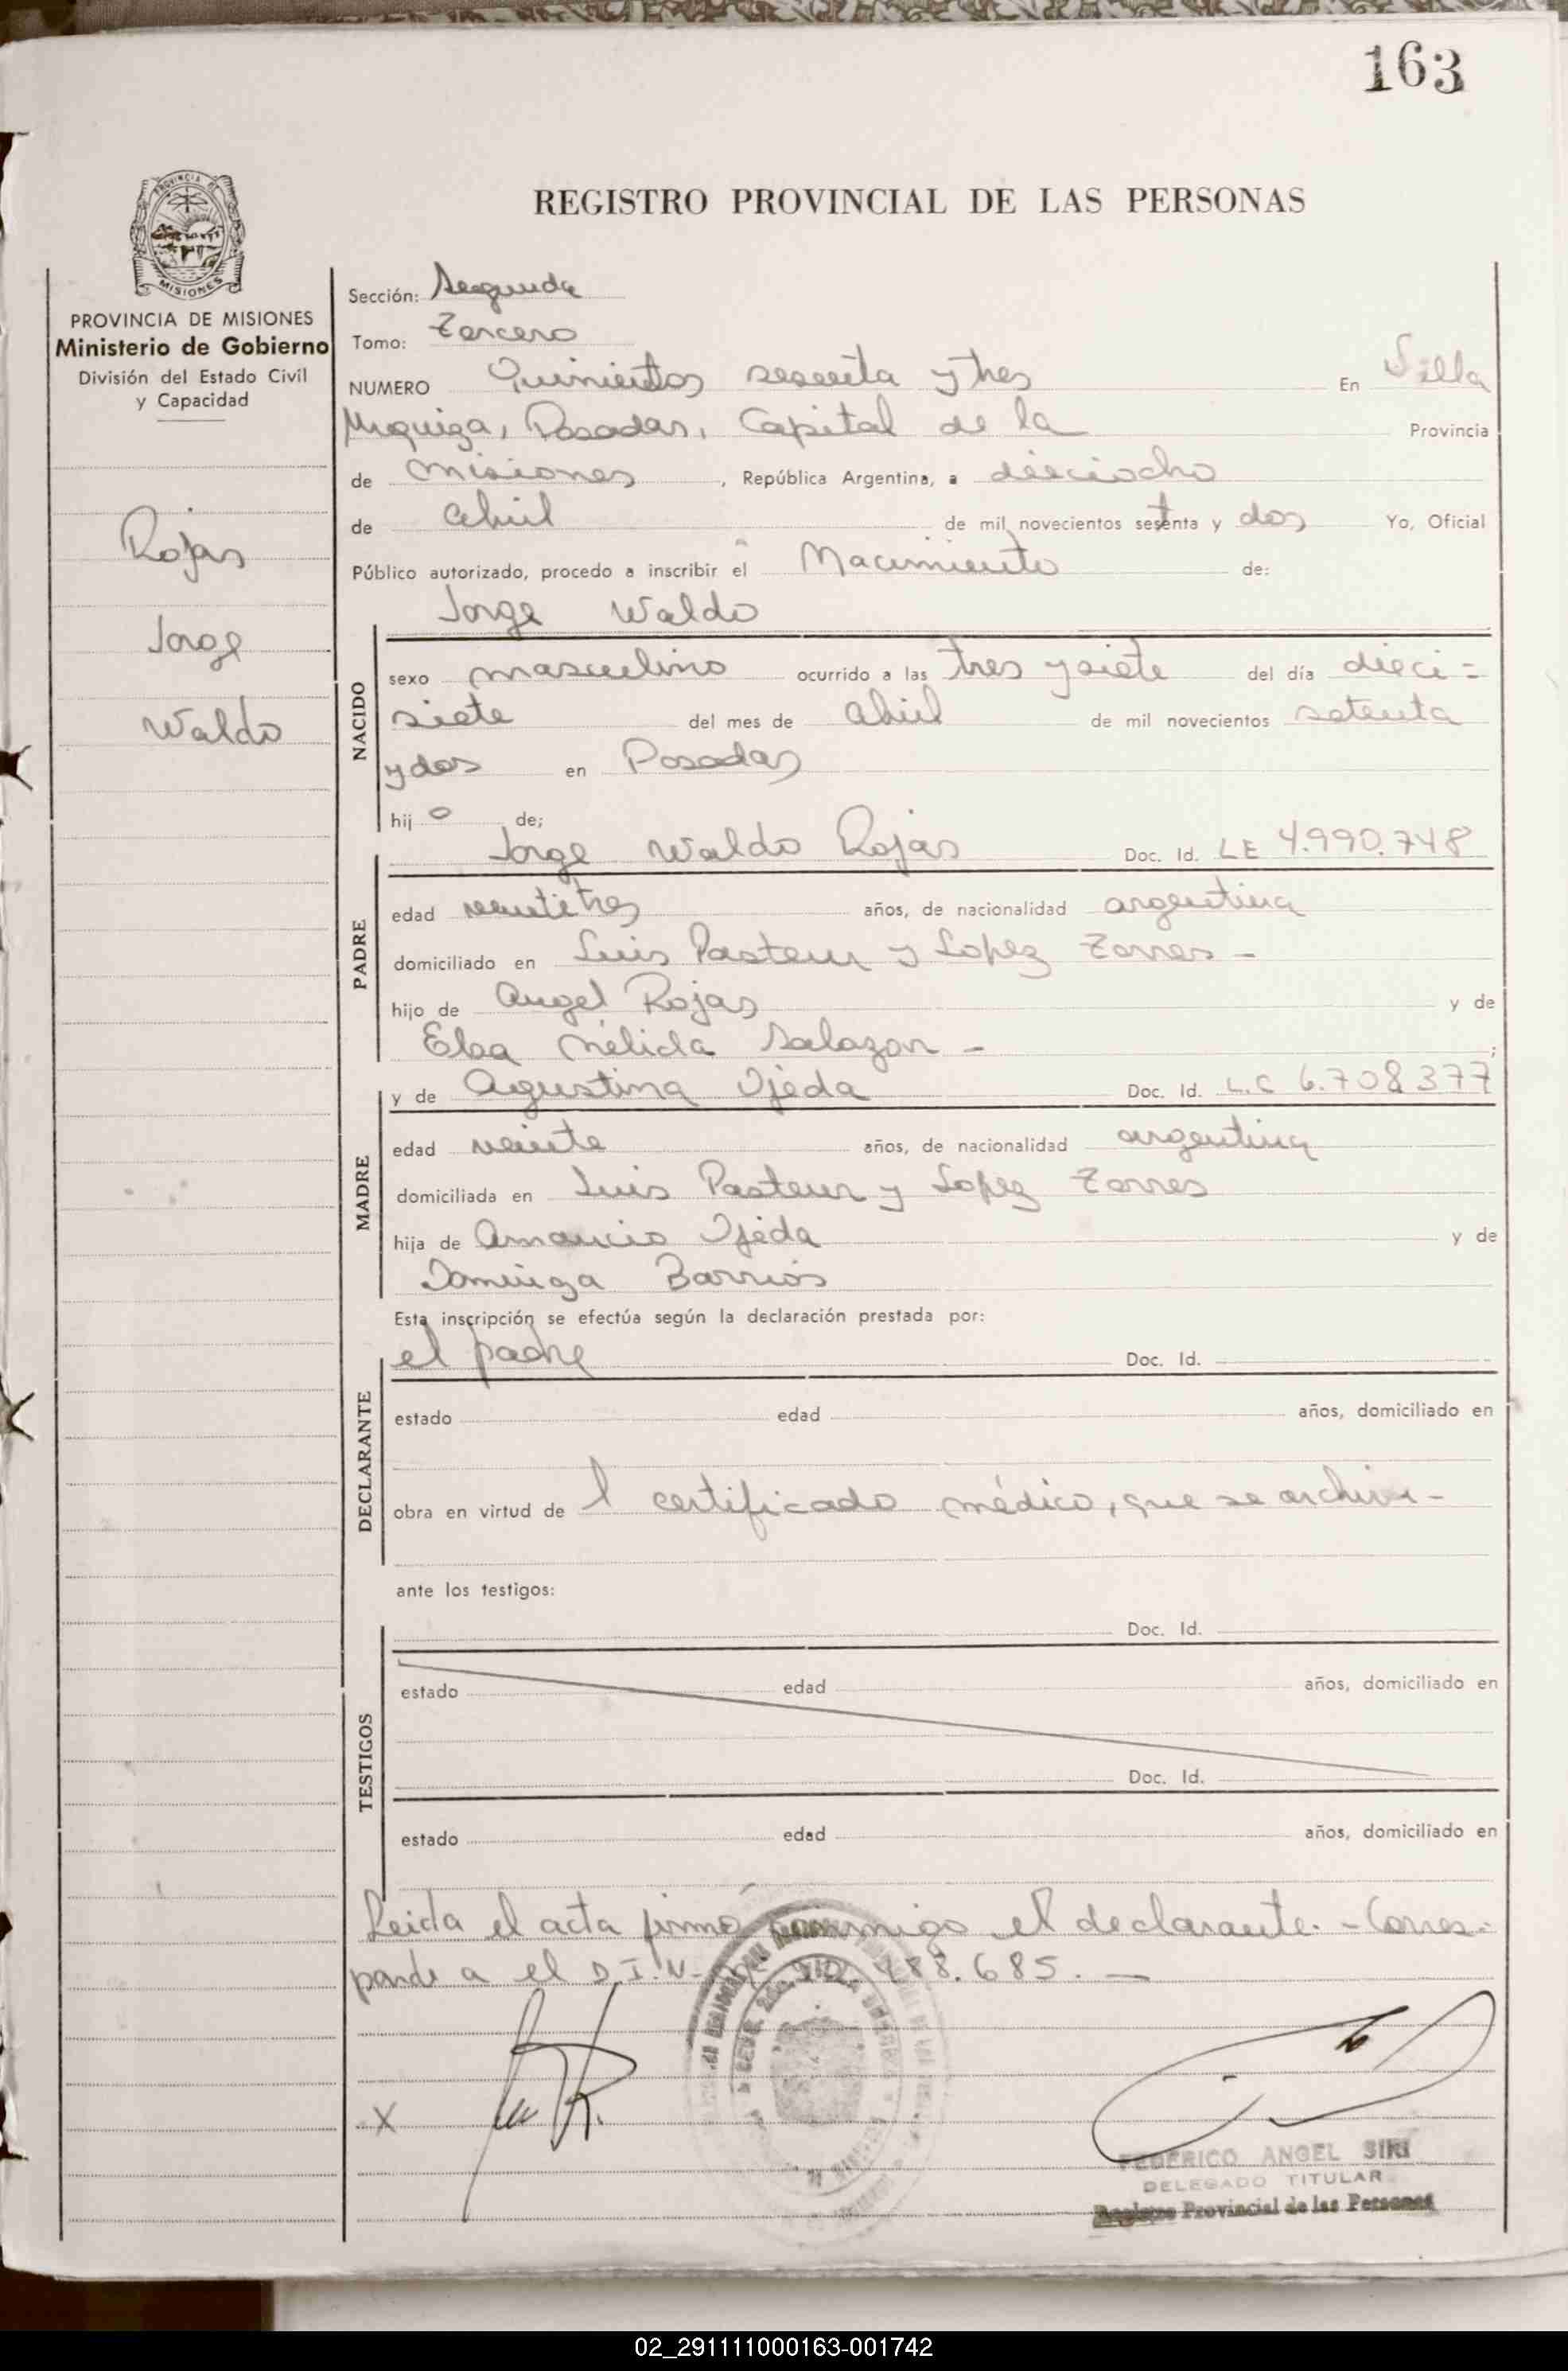 163
REGISTRO PROVINCIAL DE LAS PERSONAS
PROVINCIA DE MISIONES
Ministerio de Gobierno
División del Estado Civil
y Capacidad
Rojas
Jorge
Waldo
Sección: Segunda
Tomo: Tercero
NUMERO Quinientos sesenta y tres En Villa
Urquiza, Posadas, Capital de la Provincia
de Misiones, República Argentina, a dieciocho
de abril de mil novecientos setenta y dos Yo, Oficial
Público autorizado, procedo a inscribir el Nacimiento de:
Jorge Waldo
NACIDO
sexo masculino ocurrido a las tres y siete del día dieci=
siete del mes de abril de mil novecientos setenta
y dos en Posadas
hijo de;
Jorge Waldo Rojas Doc. Id. LE 4.990.748
PADRE
edad veintitres años, de nacionalidad argentina
domiciliado en Luis Pasteur y Lopez Torres -
hijo de Angel Rojas y de
Elsa Nélida Salazar - ;
y de Agustina Ojeda Doc. Id. L.C 6.708377
MADRE
edad veinte años, de nacionalidad argentina
domiciliada en Luis Pasteur y Lopez Torres
hija de Amancio Ojeda y de
Dominga Barrios
Esta inscripción se efectúa según la declaración prestada por:
el padre Doc. Id.
DECLARANTE
estado edad años, domiciliado en
obra en virtud de l certificado médico, que se archiva-
ante los testigos:
Doc. Id.
TESTIGOS
estado edad años, domiciliado en
Doc. Id.
estado edad años, domiciliado en
Leida el acta firmó conmigo el declarante. - Corres=
ponde a el D.I.N. 488.685. —
X
FEDERICO ANGEL SIRI
DELEGADO TITULAR
Registro Provincial de las Personas
02_291111000163-001742